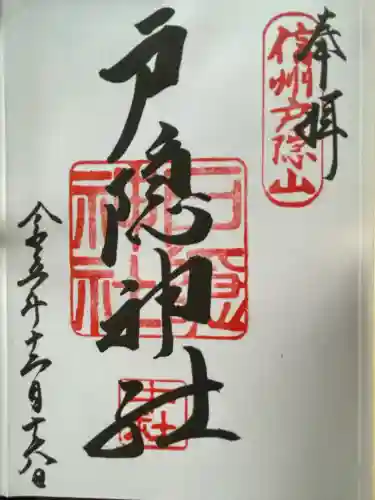 奉拝
信州戸隠山
戸隠神社
戸隠
神社
中社
令和五年十二月十八日